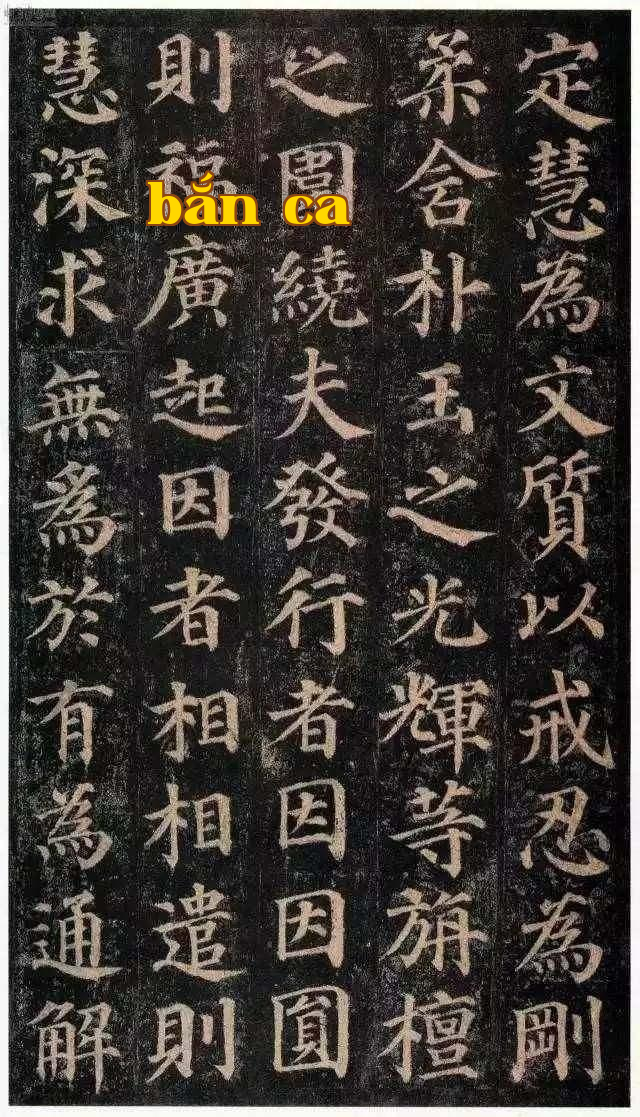 定慧為文質以戒忍為剛
柔含朴玉之光輝等旃檀
之圍繞夫發行者因因圓
則福廣起因者相相遣則
慧深求無為於有為通解
bắn ca